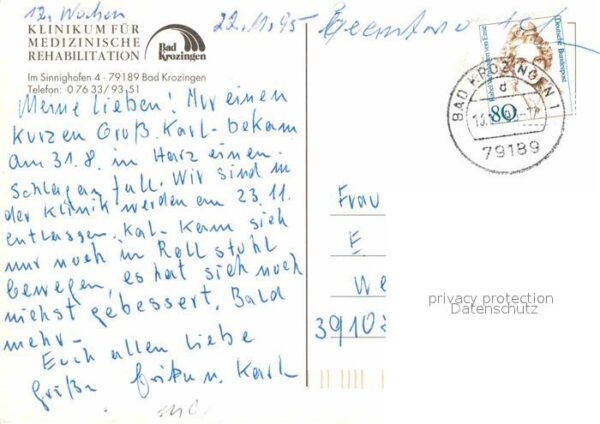 12. Wochen
22.11.95 Beantwortet
KLINIKUM FÜR
MEDIZINISCHE
REHABILITATION
Bad
Krozingen
Im Sinnighofen 4 · 79189 Bad Krozingen
Telefon: 0 76 33/93-51
Meine Lieben! Nur einen
kurzen Gruß. Karl bekam
am 31.8. in Harz einen
Schlaganfall. Wir sind in
der Klinik werden am 23.11.
entlassen. Karl kann sich
nur noch in Rollstuhl
bewegen, es hat sich noch
nichst gebessert. Bald
mehr-
Euch allen liebe
Grüße Erika u. Karl
Deutsche Bundespost
80
BAD KROZINGEN 1
d
79189
Frau
E
We
3910
privacy protection
Datenschutz